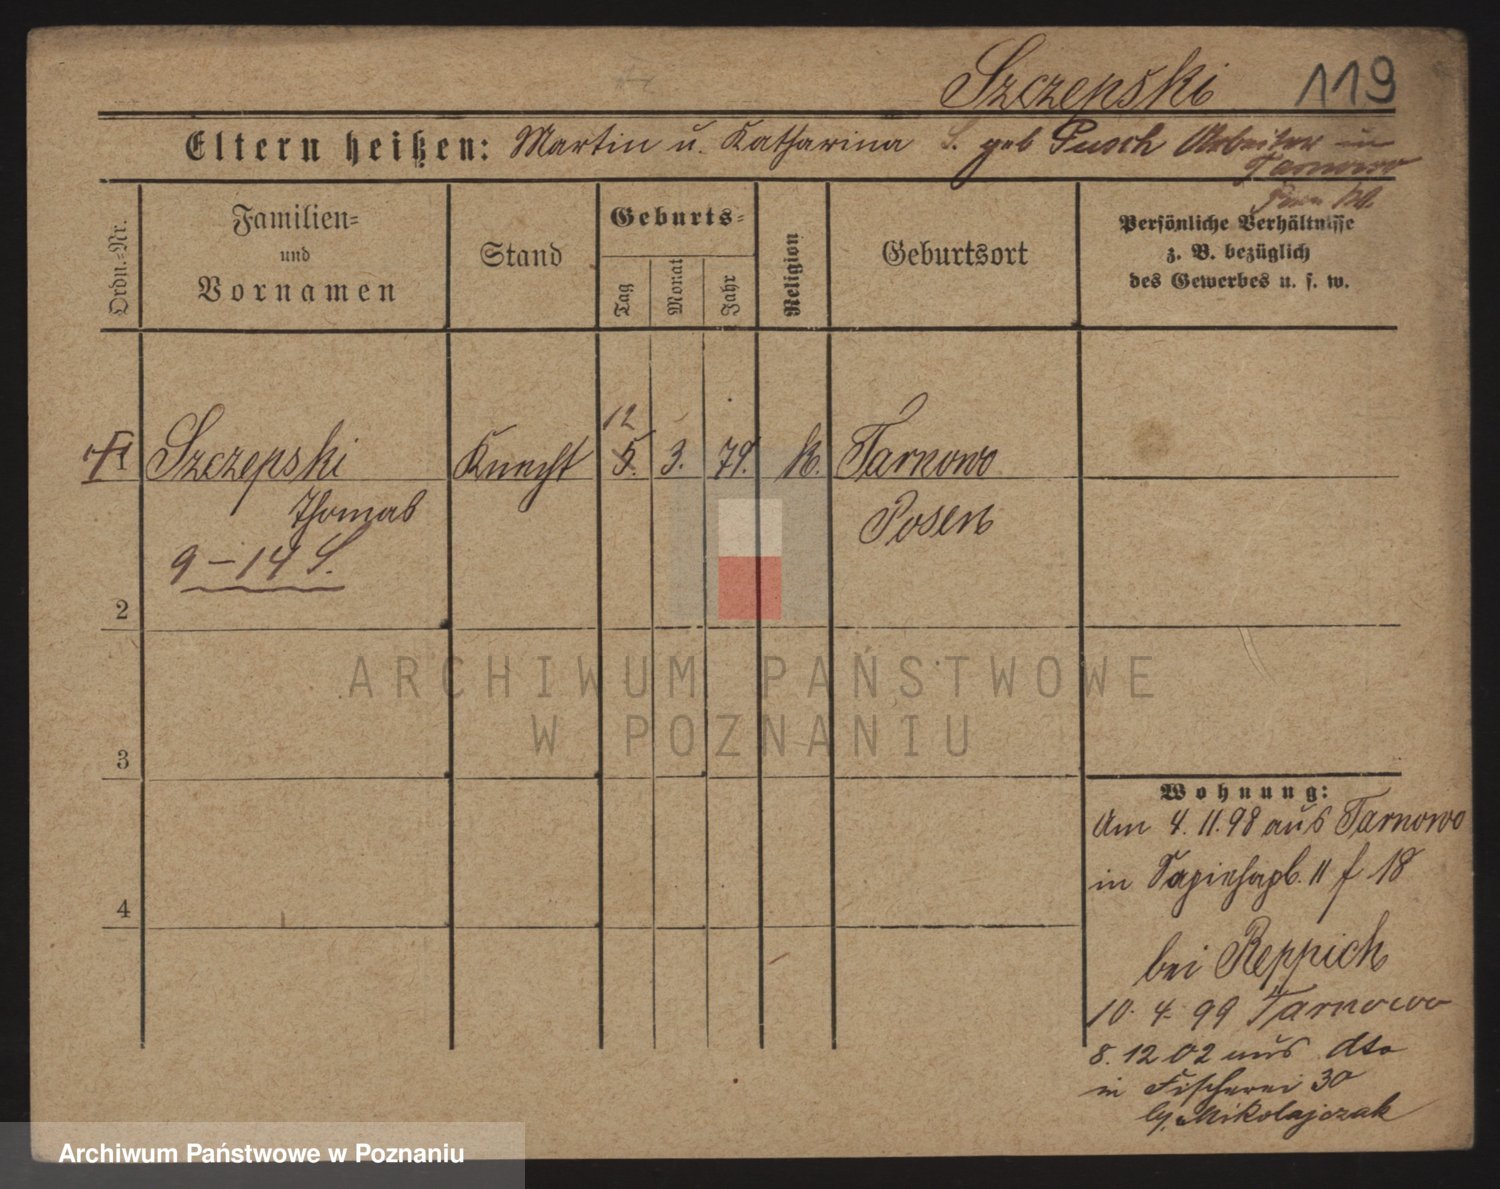 Szczepski 119
Eltern heißen: Martin u. Katharina S. geb Pusch Arbeiter in
Tarnowo
Posen
Ordn.=Nr.
Familien=
und
Vornamen
Stand
Geburts=
Tag
Monat
Jahr
Religion
Geburtsort
Persönliche Verhältnisse
z. B. bezüglich
des Gewerbes u. s. w.
12
1 Szczepski Knecht 5. 3. 79. k. Tarnowo
Thomas Posen
9–14 S.
2
3
4
Wohnung:
Am 4.11.98 aus Tarnowo
in Sapiehapl. 11 f 18
bei Reppich
10. 4. 99 Tarnowo
8. 12 02 aus dto
in Fischerei 30
by. Mikolajczak
ARCHIWUM PAŃSTWOWE
W POZNANIU
Archiwum Państwowe w Poznaniu